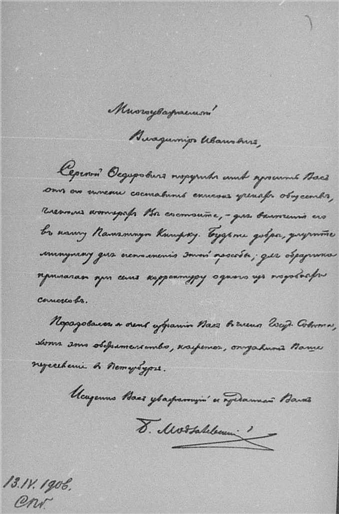 Многоуважаемый
Владимиръ Ивановичъ,
Сергѣй Ѳедоровичъ поручилъ мнѣ просить Васъ
отъ его имени составить списокъ ученыхъ обществъ,
членомъ которыхъ Вы состоите, – для включенія его
въ нашу Памятную Книжку. Будьте добры, улучите
минутку для исполненія этой просьбы; для образчика
прилагаю при семъ корректуру одного изъ подобныхъ
списковъ.
Порадовался я очень избранію Васъ въ члены Госуд. Совѣта,
хотя это обстоятельство, кажется, отдалитъ Ваше
переселеніе въ Петербургъ.
Искренно Васъ уважающій и преданный Вамъ
Б. Модзалевскій
13.IV.1906.
СПб.